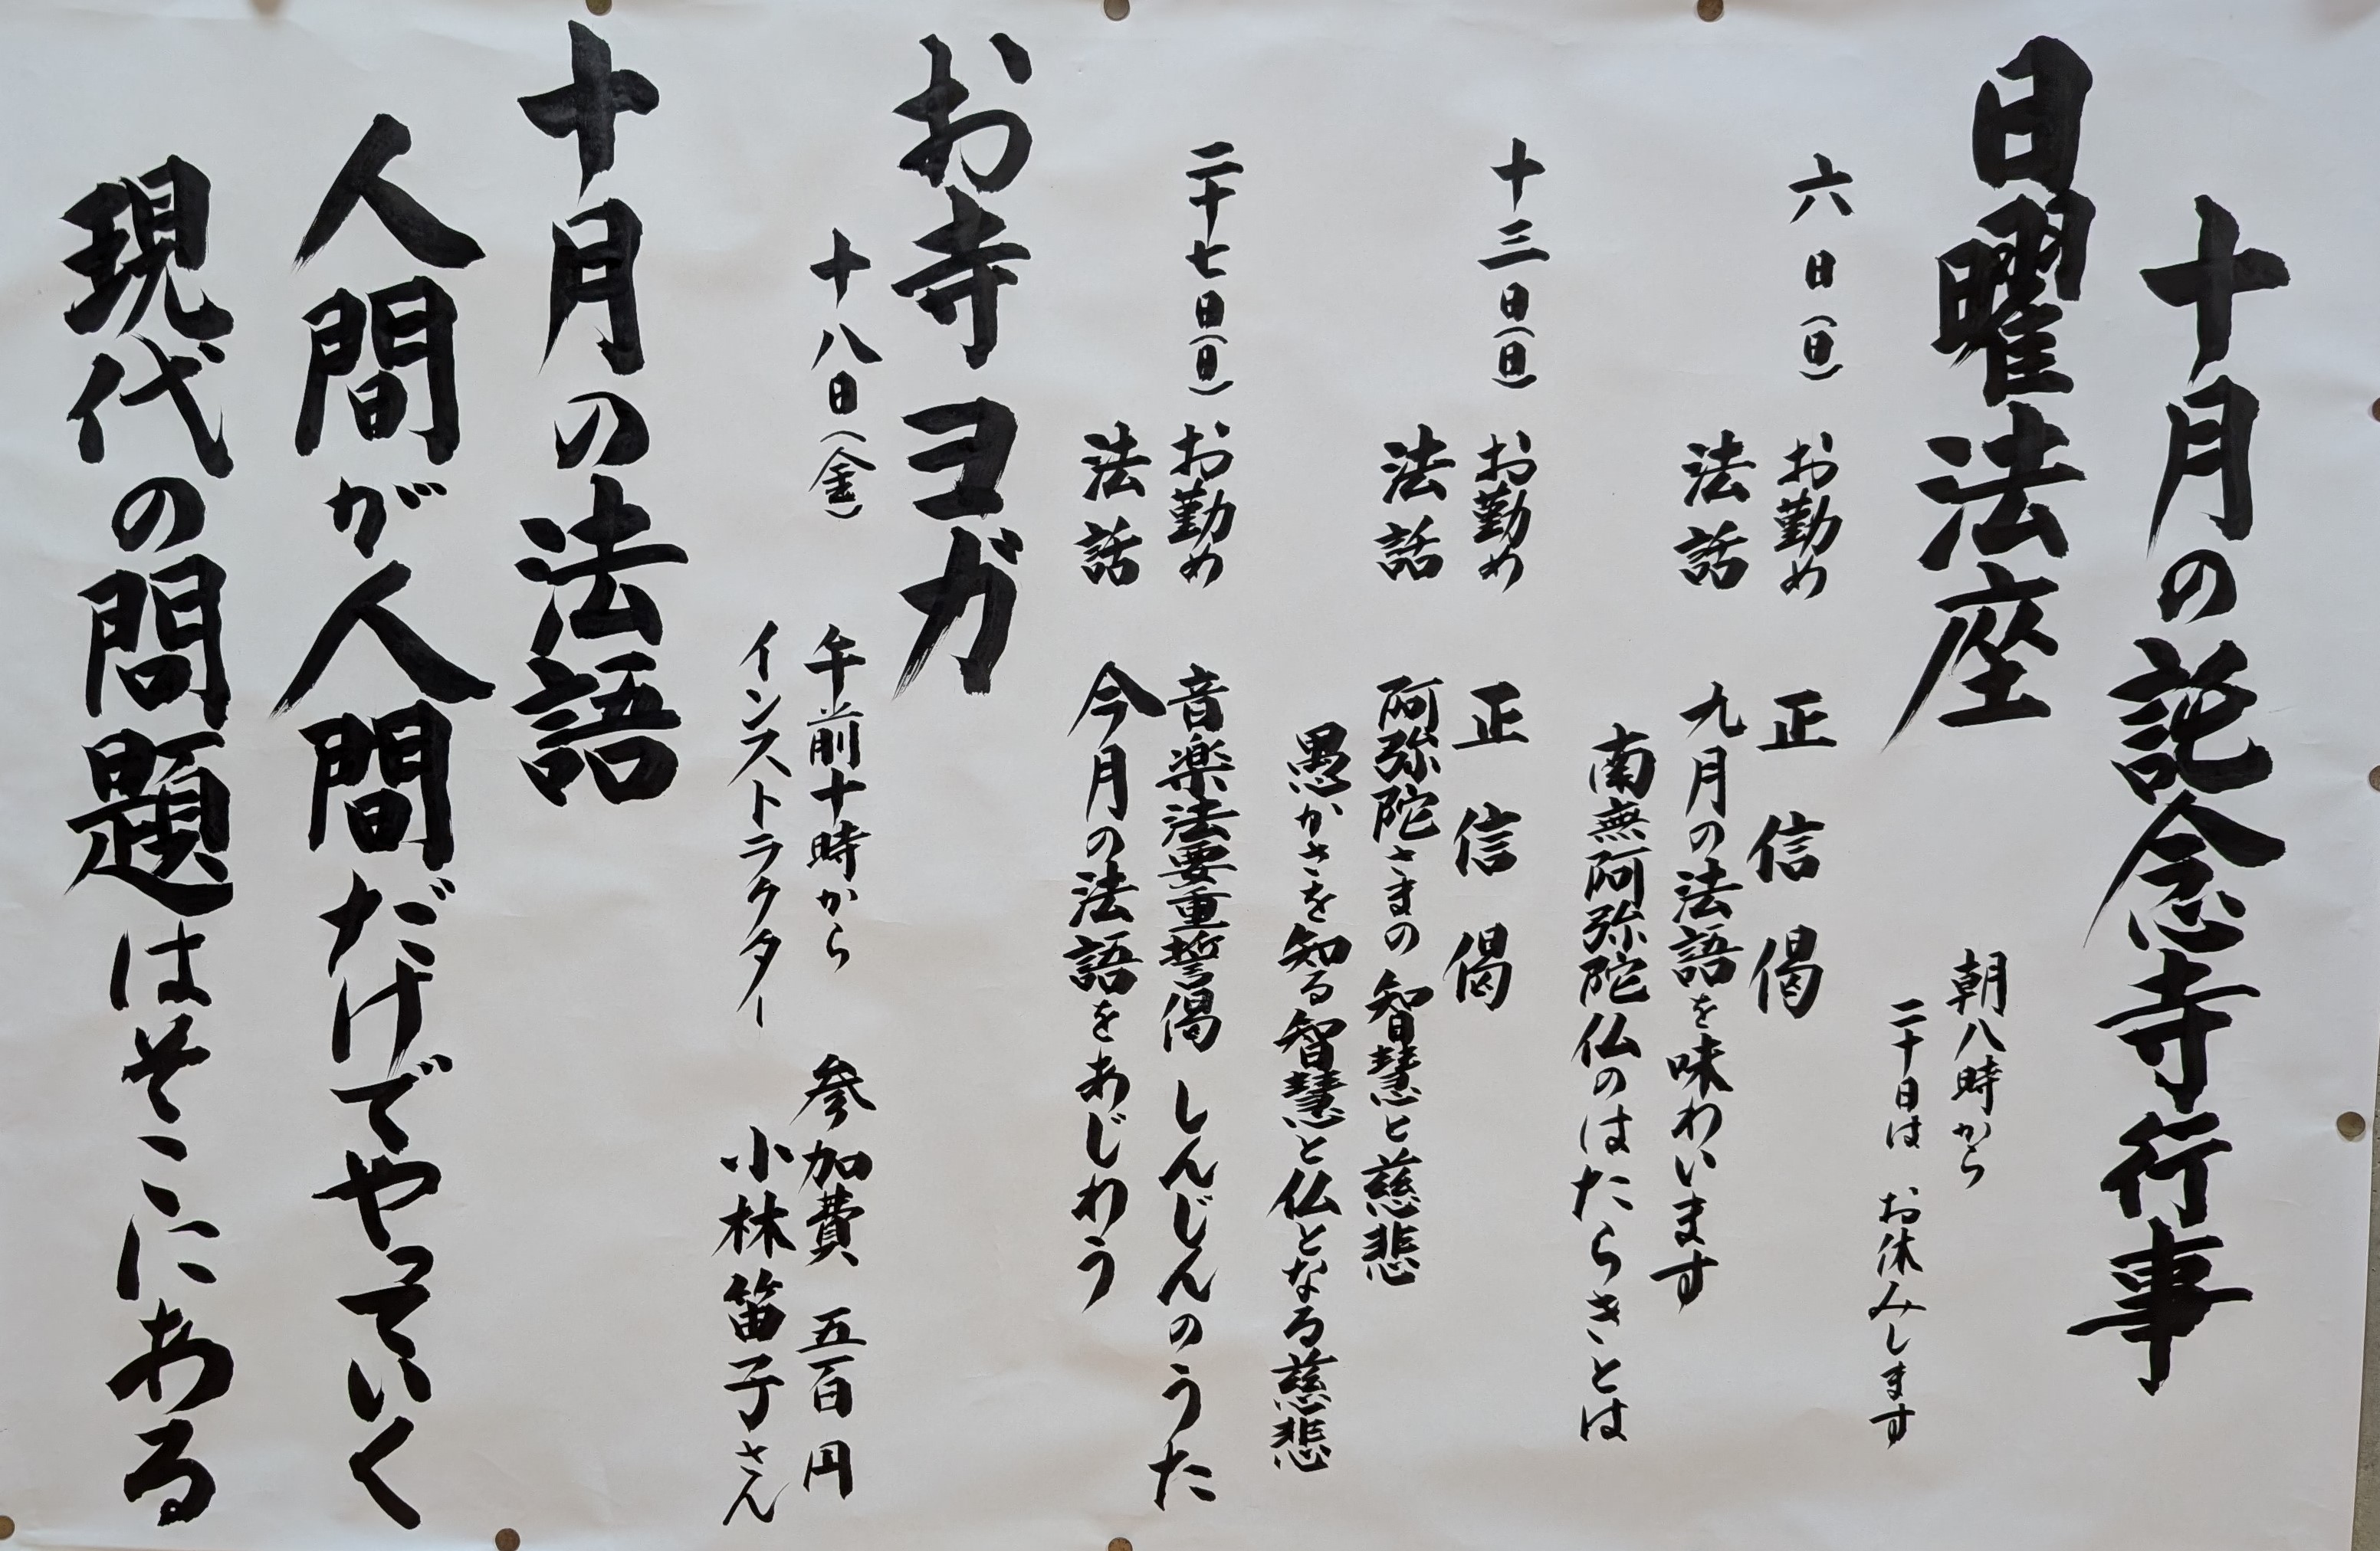 十月の託念寺行事
日曜法座
朝八時から
二十日は お休みします
六日(日)
お勤め 正信偈
法話 九月の法語を味わいます
南無阿弥陀仏のはたらきとは
十三日(日)
お勤め 正信偈
法話 阿弥陀さまの智慧と慈悲
愚かさを知る智慧と仏となる慈悲
二十七日(日)
お勤め 音楽法要重誓偈 しんじんのうた
法話 今月の法語をあじわう
お寺ヨガ
十八日(金) 午前十時から 参加費 五百円
インストラクター 小林笛子さん
十月の法語
人間が人間だけでやっていく
現代の問題はそこにある